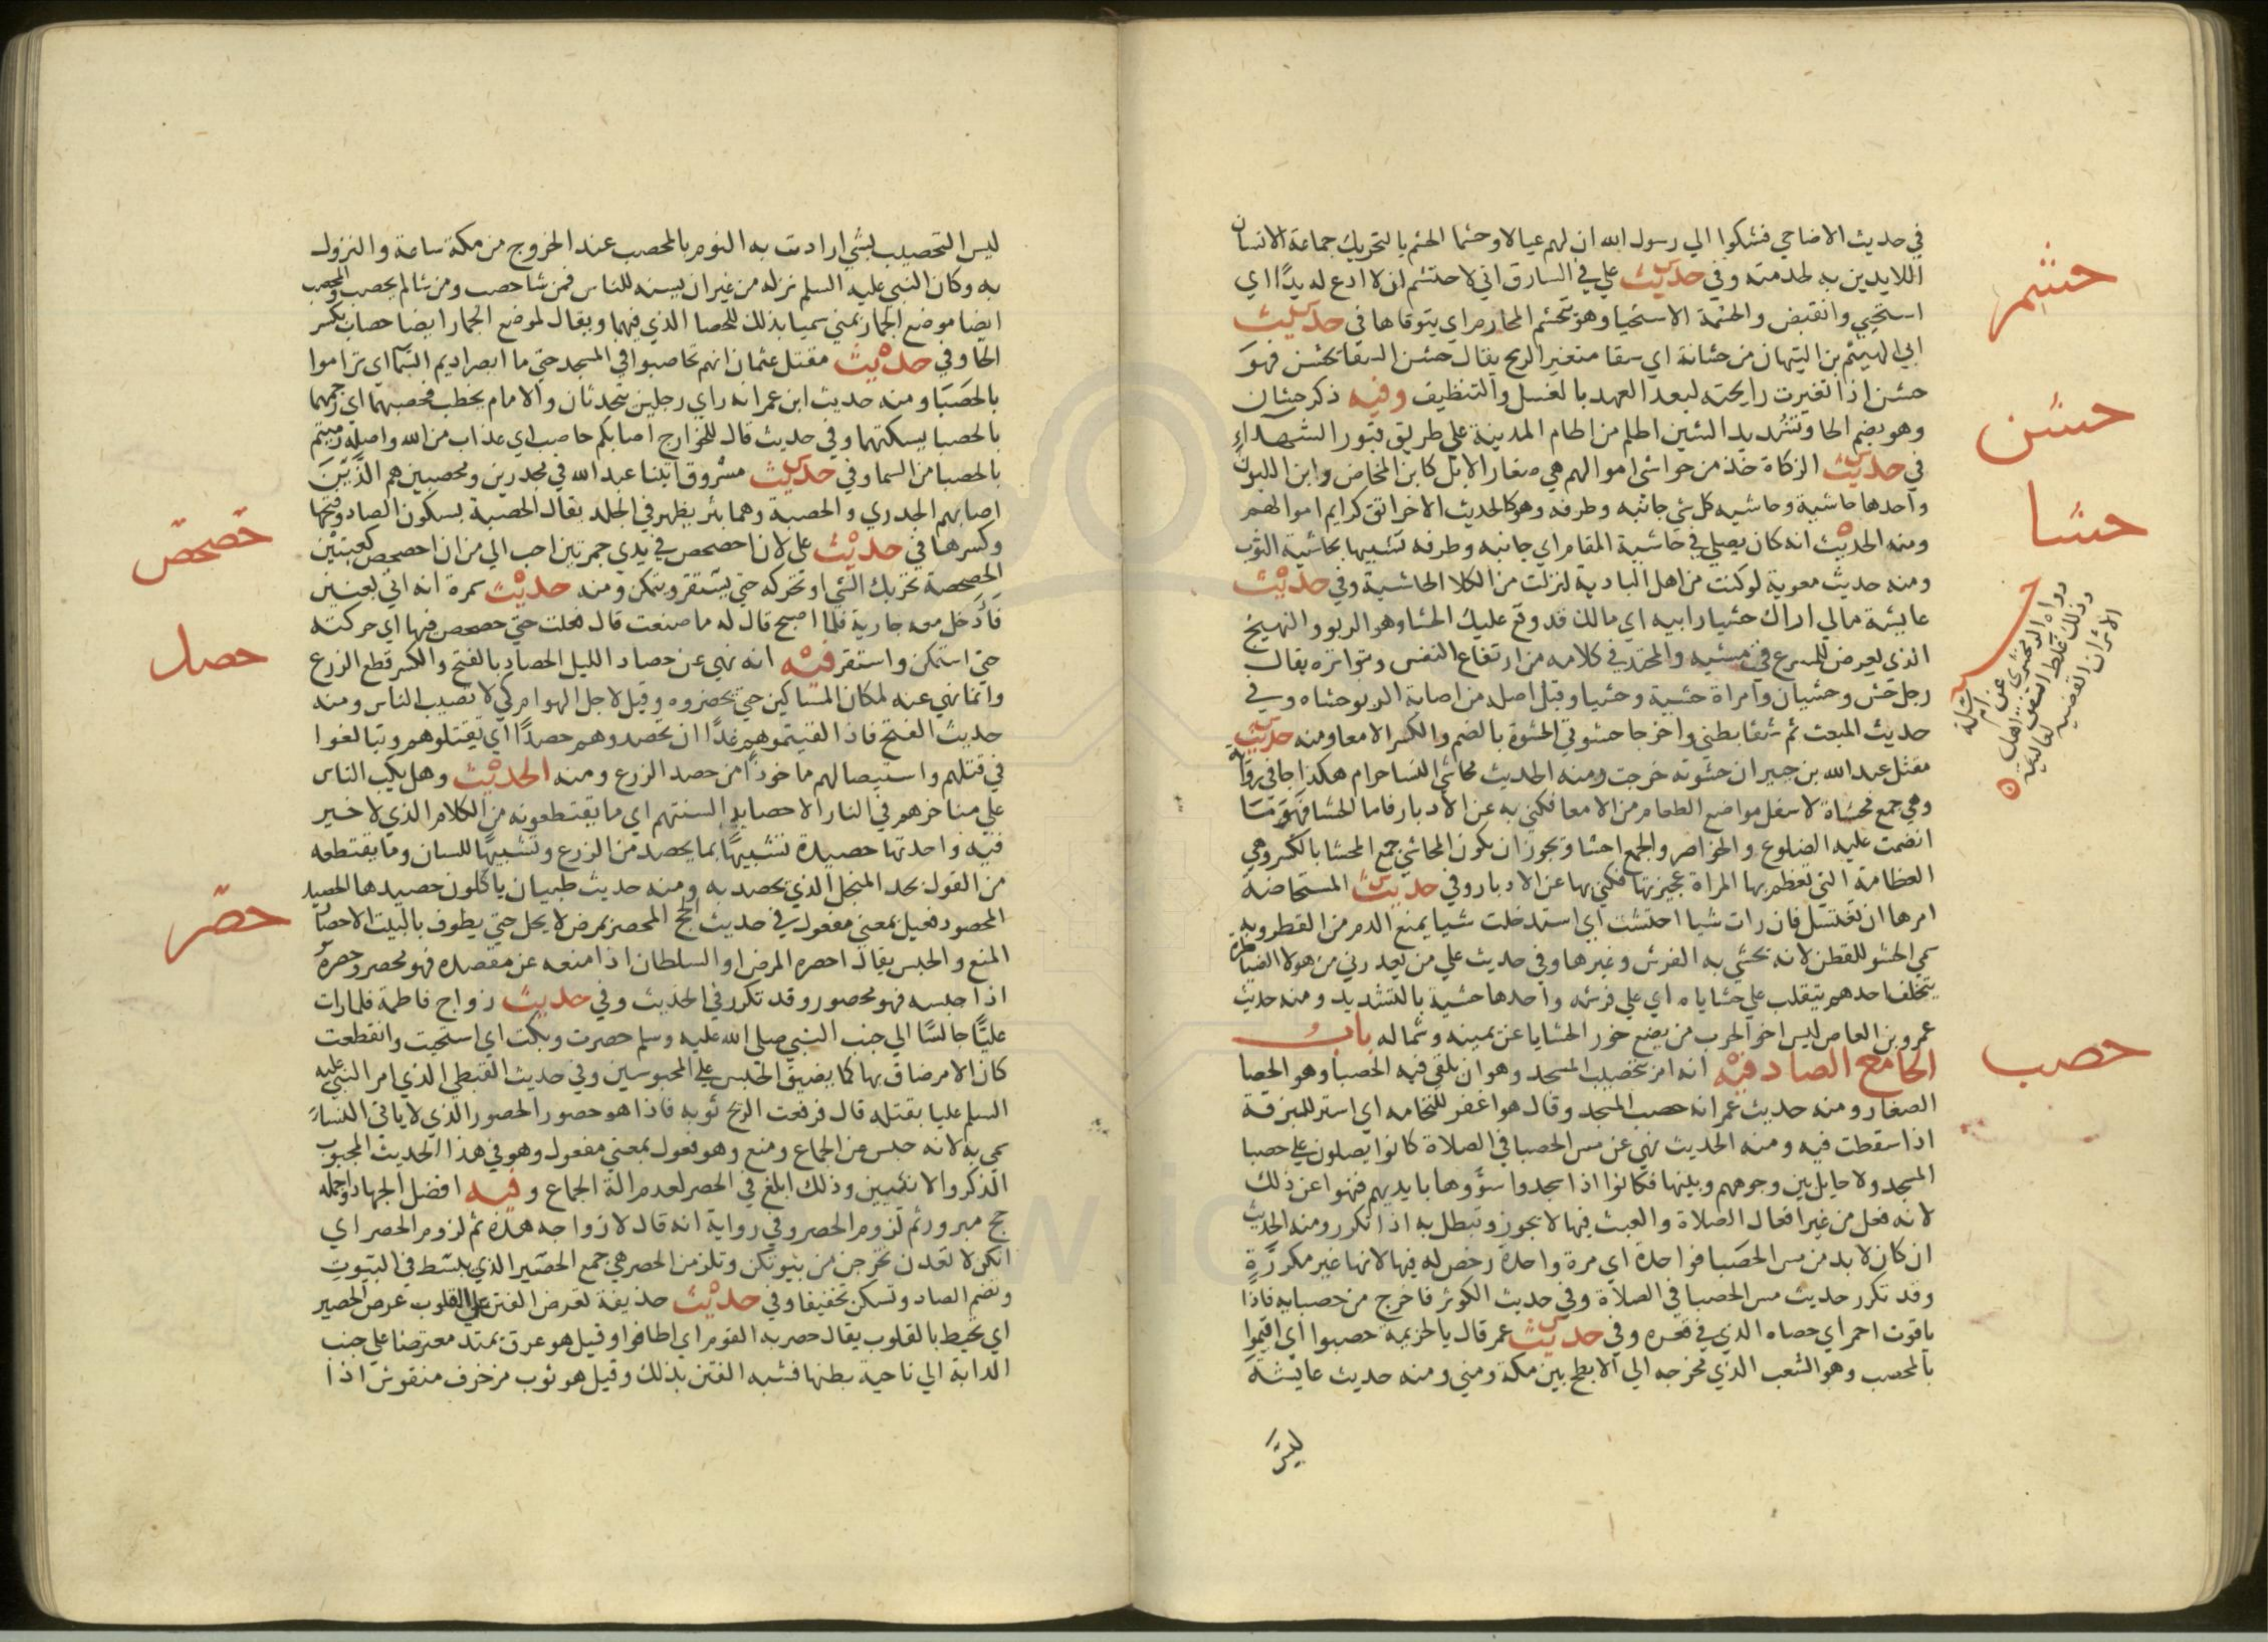 في حديث الاضاحي فشكوا الي رسول الله ان لهم عيالا وحشما الحشم بالتحريك جماعة الانسان
اللايذين به لخدمته وفي حديث علي في السارق اني لاحتشم ان لا ادع له يدًا اي
استحيي وانقبض والحشمة الاستحيا وهو يتحشم المحارم اي يتوقاها في حديث
ابي الهيثم بن التيهان من حشانة اي سقا متغير الريح يقال حشن السقا يحشن فهو
حشن اذا تغيرت رايحته لبعد العهد بالغسل والتنظيف وفيه ذكر حشان
وهو بضم الحا وتشديد الشين اطم من اطام المدينة علي طريق قبور الشهداء
في حديث الزكاة خذ من حواشي اموالهم هي صغار الابل كابن المخاض وابن اللبون
واحدها حاشية وحاشيه كل شي جانبه وطرفه وهو كالحديث الاخر اتق كرايم اموالهم
ومنه الحديث انه كان يصلي في حاشية المقام اي جانبه وطرفه تشبيها بحاشية الثوب
ومنه حديث معوية لو كنت من اهل البادية لنزلت من الكلا الحاشية وفي حديث
عايشة مالي اراك حشيا رابيه اي مالك قد وقع عليك الحشا وهو الربو والنهيج
الذي يعرض للمسرع في مشيه والمحتد في كلامه من ارتفاع النفس وتواتره يقال
رجل حش وحشيان وامراة حشية وحشيا وقيل اصله من اصابة الربو حشاه وفي
حديث المبعث ثم شقا بطني واخرجا حشوتي الحشوة بالضم والكسر الامعا ومنه حديث
مقتل عبد الله بن جبير ان حشوته خرجت ومنه الحديث محاشي النسا حرام هكذا جا في رواية
وهي جمع محشاة لاسفل مواضع الطعام من الامعا فكني به عن الادبار فاما الحشا فهو ما
انضمت عليه الضلوع والخواصر والجمع احشا ويجوز ان يكون المحاشي جمع المحشا بالكسر وهي
العظامة التي تعظم بها المراة عجيزتها فكني بها عن الادبار وفي حديث المستحاضة
امرها ان تغتسل فان رات شيا احتشت اي استدخلت شيا يمنع الدم من القطر وبه
سمي الحشو للقطن لانه تحشي به الفرش وغيرها وفي حديث علي من يعذرني من هولا الضياطرة
يتخلف احدهم يتقلب علي حشاياه اي علي فرشه واحدها حشية بالتشديد ومنه حديث
عمرو بن العاص ليس اخو الحرب من يضع خور الحشايا عن يمينه وشماله باب
الحا مع الصاد فيه انه امر بتحصيب المسجد وهو ان يلقي فيه الحصبا وهو الحصا
الصغار ومنه حديث عمر انه حصب المسجد وقال هو اغفر للنخامه اي استر للبزقة
اذا سقطت فيه ومنه الحديث نهي عن مس الحصبا في الصلاة كانوا يصلون علي حصبا
المسجد ولا حايل بين وجوههم وبينها فكانوا اذا سجدوا سوّوها بايديهم فنهوا عن ذلك
لانه فعل من غير افعال الصلاة والعبث فيها لا يجوز وتبطل به اذا تكرر ومنه الحديث
ان كان لا بد من مس الحصبا فواحدة اي مرة واحدة رخص له فيها لانها غير مكررة
وقد تكرر حديث مس الحصبا في الصلاة وفي حديث الكوثر فاخرج من حصبايه فاذا
ياقوت احمر اي حصاه الذي في قعره وفي حديث عمر قال يالخزيمه حصبوا اي اقيموا
بالمحصب وهو الشعب الذي مخرجه الي الابطح بين مكة ومني ومنه حديث عايشة
ليس
حشم
حشن
حشا
رواه الزمخشري عن ام سلمة
حصب
ليس التحصيب بشي ارادت به النوم بالمحصب عند الخروج من مكة ساعة والنزول
به وكان النبي عليه السلم نزله من غير ان يسنه للناس فمن شا حصب ومن شا لم يحصب والمحصب
ايضا موضع الجمار بمني سميا بذلك للحصا الذي فيهما ويقال لموضع الجمار ايضا حصاب بكسر
الحا وفي حديث مقتل عثمان انهم تحاصبوا في المسجد حتي ما ابصر اديم السّمآ اي تراموا
بالحصبا ومنه حديث ابن عمر انه راي رجلين يتحدثان والامام يخطب فحصبهما اي رجمهما
بالحصبا يسكتهما وفي حديث قال للخوارج اصابكم حاصب اي عذاب من الله واصله رميتم
بالحصبا من السما وفي حديث مسروق اتينا عبد الله في مجدرين ومحصبين هم الذين
اصابهم الجدري والحصبة وهما بثر يظهر في الجلد يقال الحصبة بسكون الصاد وفتحها
وكسرها في حديث علي لان احصحص في يدي جمرتين احب الي من ان احصحص كعبتين
الحصحصة تحريك الشي او تحركه حتي يستقر ويتمكن ومنه حديث سمرة انه اتي بعنين
فادخل معه جارية فلما اصبح قال له ما صنعت قال فعلت حتي حصحص فيها اي حركته
حتي استمكن واستقر فيه انه نهي عن حصاد الليل الحصاد بالفتح والكسر قطع الزرع
وانما نهي عنه لمكان المساكين حتي يحضروه وقيل لاجل الهوام كي لا تصيب الناس ومنه
حديث الفتح فاذا لقيتموهم غدًا ان تحصدوهم حصدًا اي تقتلوهم وتبالغوا
في قتلهم واستيصالهم ماخوذًا من حصد الزرع ومنه الحديث وهل يكب الناس
علي مناخرهم في النار الا حصايد السنتهم اي ما يقتطعونه من الكلام الذي لا خير
فيه واحدتها حصيدة تشبيهًا بما يحصد من الزرع وتشبيهًا للسان وما يقتطعه
من القول بحد المنجل الذي يحصد به ومنه حديث ظبيان ياكلون حصيدها الحصيد
المحصود فعيل بمعني مفعول في حديث الحج المحصر بمرض لا يحل حتي يطوف بالبيت الاحصار
المنع والحبس يقال احصره المرض او السلطان اذا منعه عن مقصده فهو محصر وحصره
اذا حبسه فهو محصور وقد تكرر في الحديث وفي حديث زواج فاطمة فلما رات
عليًّا جالسًا الي جنب النبي صلي الله عليه وسلم حصرت وبكت اي استحيت وانقطعت
كان الامر ضاق بها كما يضيق الحبس علي المحبوسين وفي حديث القبطي الذي امر النبي عليه
السلم عليا بقتله قال فرفعت الريح ثوبه فاذا هو حصور الحصور الذي لا ياتي النساء
سمي به لانه حبس عن الجماع ومنع وهو فعول بمعني مفعول وهو في هذا الحديث المجبوب
الذكر والانثيين وذلك ابلغ في الحصر لعدم الة الجماع وفيه افضل الجهاد واجمله
حج مبرور ثم لزوم الحصر وفي رواية انه قال لازواجه هذه ثم لزوم الحصر اي
انكن لا تعدن تخرجن من بيوتكن وتلزمن الحصر هي جمع الحصير الذي يبسط في البيوت
وتضم الصاد وتسكن تخفيفا وفي حديث حذيفة تعرض الفتن علي القلوب عرض الحصير
اي تحيط بالقلوب يقال حصر به القوم اي اطافوا وقيل هو عرق يمتد معترضا علي جنب
الدابة الي ناحية بطنها فشبه الفتن بذلك وقيل هو ثوب مزخرف منقوش اذا
حصحص
حصد
حصر